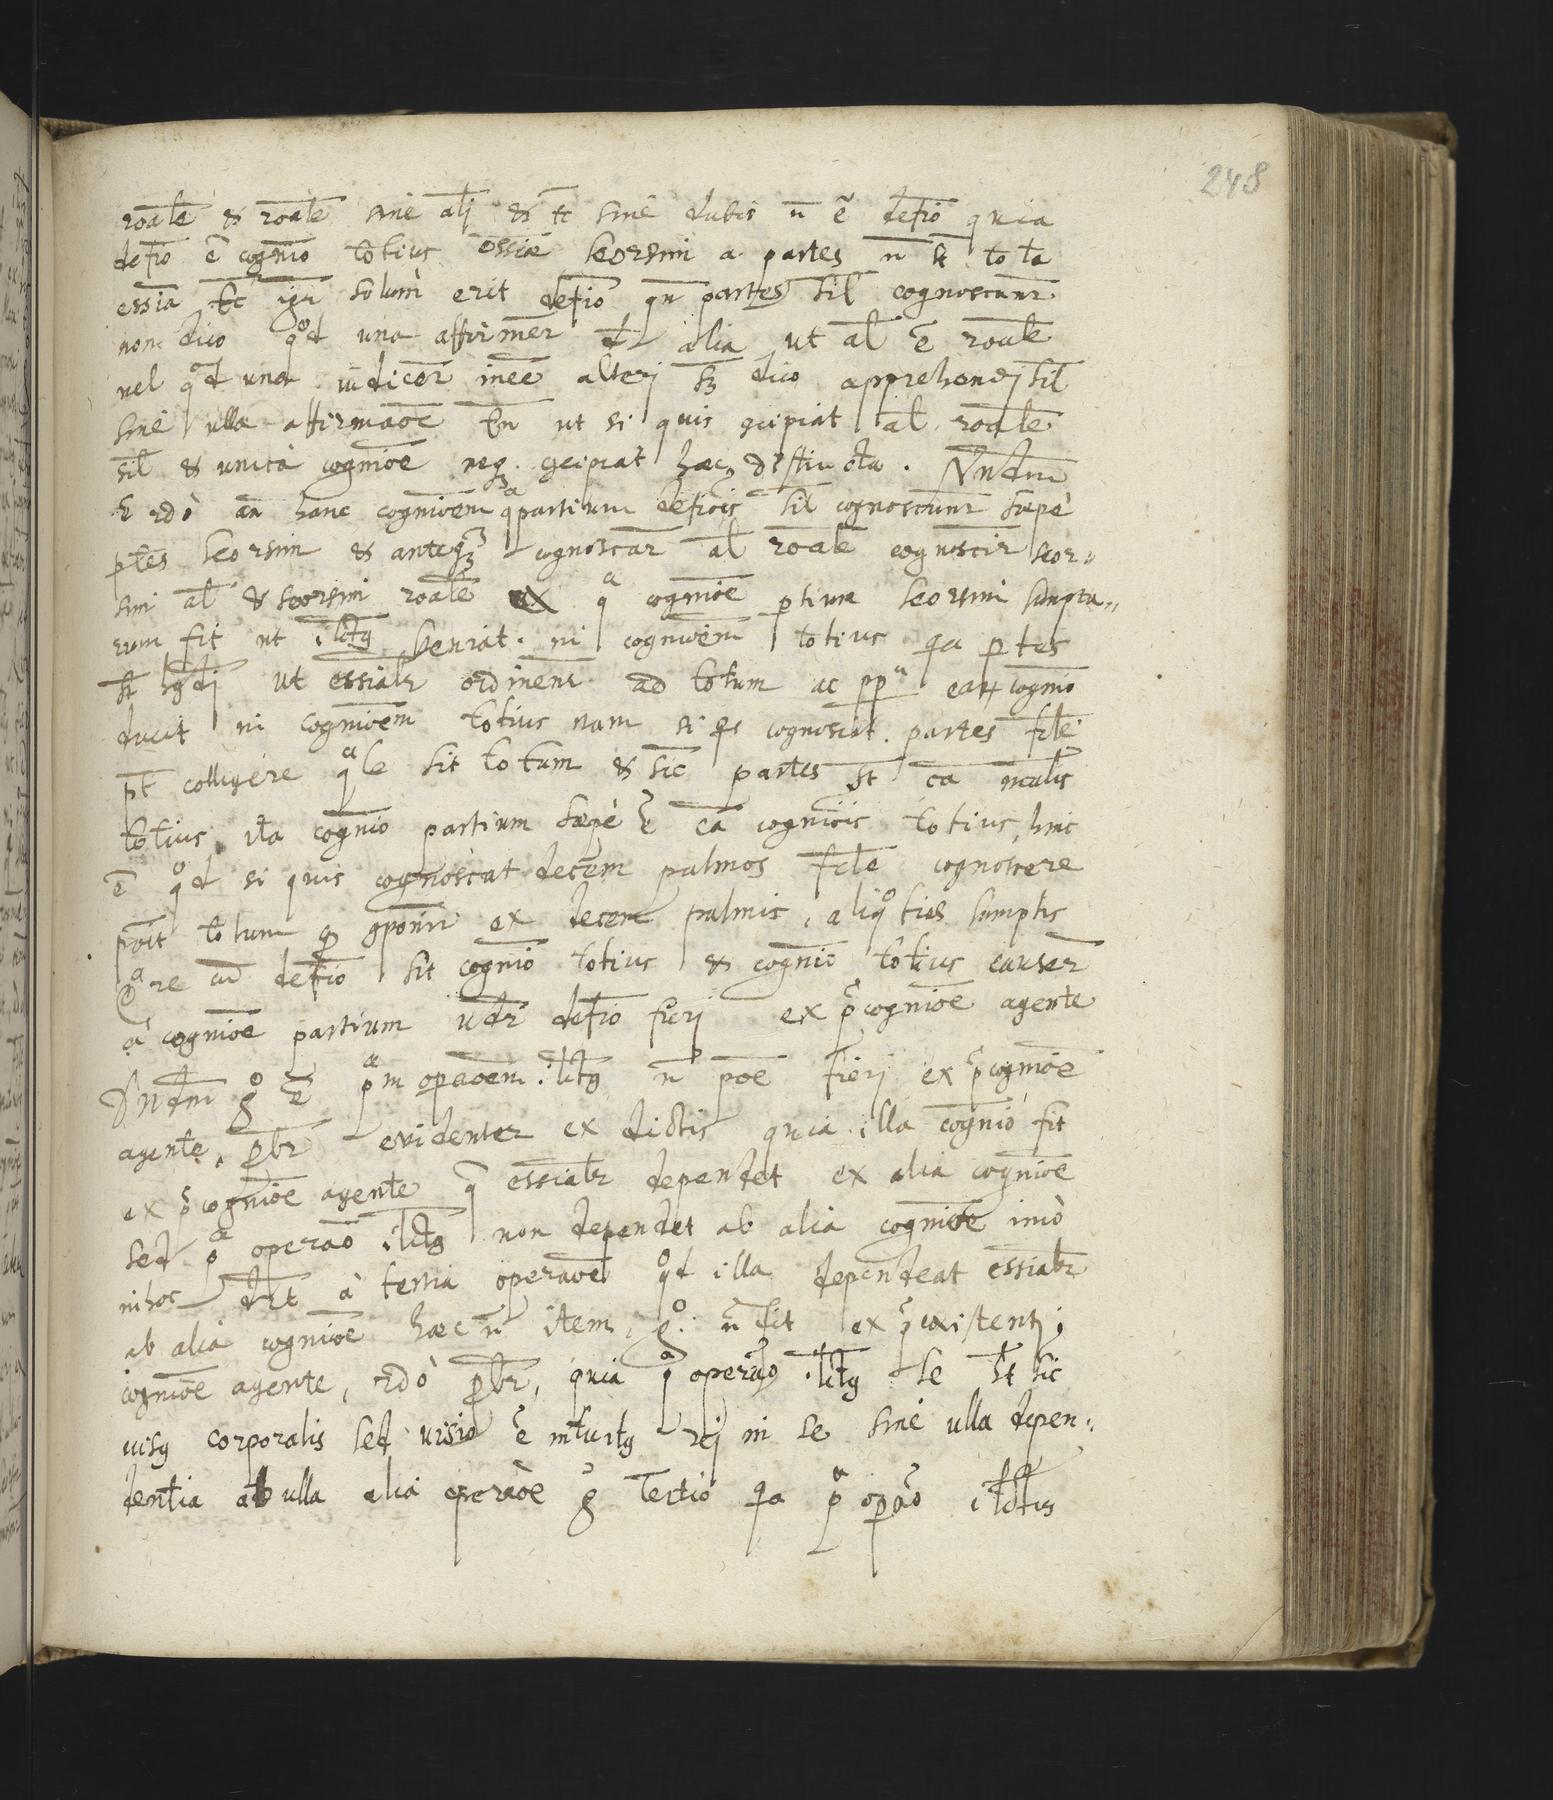 248
roāle & roāle sine alj & tc sine dubis n̄ ē defīo quia
defīo ē cognīo totius essiæ seorsim a partes n̄ st tota
essia tc igr solum erit defīo qn partes sil cognoscunr
non dico qod una affirmer d alia ut al ē roāle
vel qod una iudicēr ineē alteri sz dico apprehendj sil
sine ulla affirmaōe tn ut si quis gcipiat al roāle
sil & unica cogniōe neqz gcipiat hæc distincta. Nndm
2 rdō an hanc cogniōem qa partium defiōis sil cognoscunr sæpè
ptes seorsim & anteqz cognoscar al roāle cognoscir seor„
sim al & seorsim roāle qa cogniōe ptium seorsim sumpta„
rum fit ut iltctg veniat in cogniōem totius qa ptes
st ut essialr ordinenr ad totum ac ppa earum cognīo
ducit in cogniōem totius nam si qs cognoscat partes fcle
pt colligere quale sit totum & sic partes st ca mealis
totius, ita cognīo partium sæpè ē ca cogniōis totius, hinc
ē qod si quis cognoscat decem palmos fcle cognoscere
poīt totum gponir ex decem palmis, aliqoties sumptis
Qare cū defīo sit cognīo totius & cognīo totius causer
à cogniōe partium udr defīo fieri ex prcogniōe agente
Nndm go ē pam operaōem iltctg n̄ poē fieri ex prcogniōe
agente, pbr evidenter ex dictis quia illa cognīo fit
ex prcogniōe agente q essialr dependet ex alia cogniōe
sed pa operaō iltctg non dependet ab alia cogniōe imò
in hoc drt à tertia operaōe qod illa dependeat essialr
ab alia cogniōe hæc n̄ item, go n̄ fit ex præexistentj
cogniōe agente, 2dò pbr, quia pa operaō iltctg se ht sic
visg corporalis sed visio ē intuitg rej in se sine ulla depen„
dentia ab ulla alia operaōe g Tertiò qa pa opaō iltctus